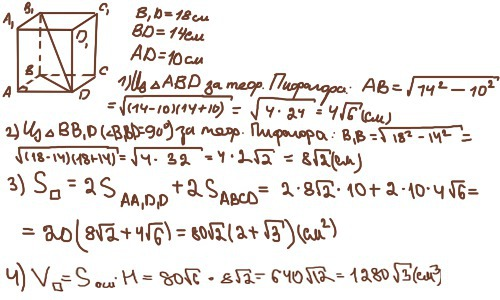 B₁ C₁
A₁ D₁
B C
A D
B₁D = 18см
BD = 14см
AD = 10см
1) Из △ABD за теор. Пифагора: AB = √(14² − 10²)
= √((14−10)(14+10)) = √(4·24) = 4√6 (см)
2) Из △BB₁D (∠B₁BD=90°) за теор. Пифагора: B₁B = √(18² − 14²) =
√((18−14)(18+14)) = √(4·32) = 4·2√2 = 8√2 (см)
3) S▱ = 2S_AA₁D₁D + 2S_ABCD = 2·8√2·10 + 2·10·4√6 =
= 20(8√2 + 4√6) = 80√2(2+√3) (см²)
4) V▱ = S осн · H = 80√6 · 8√2 = 640√12 = 1280√3 (см³)